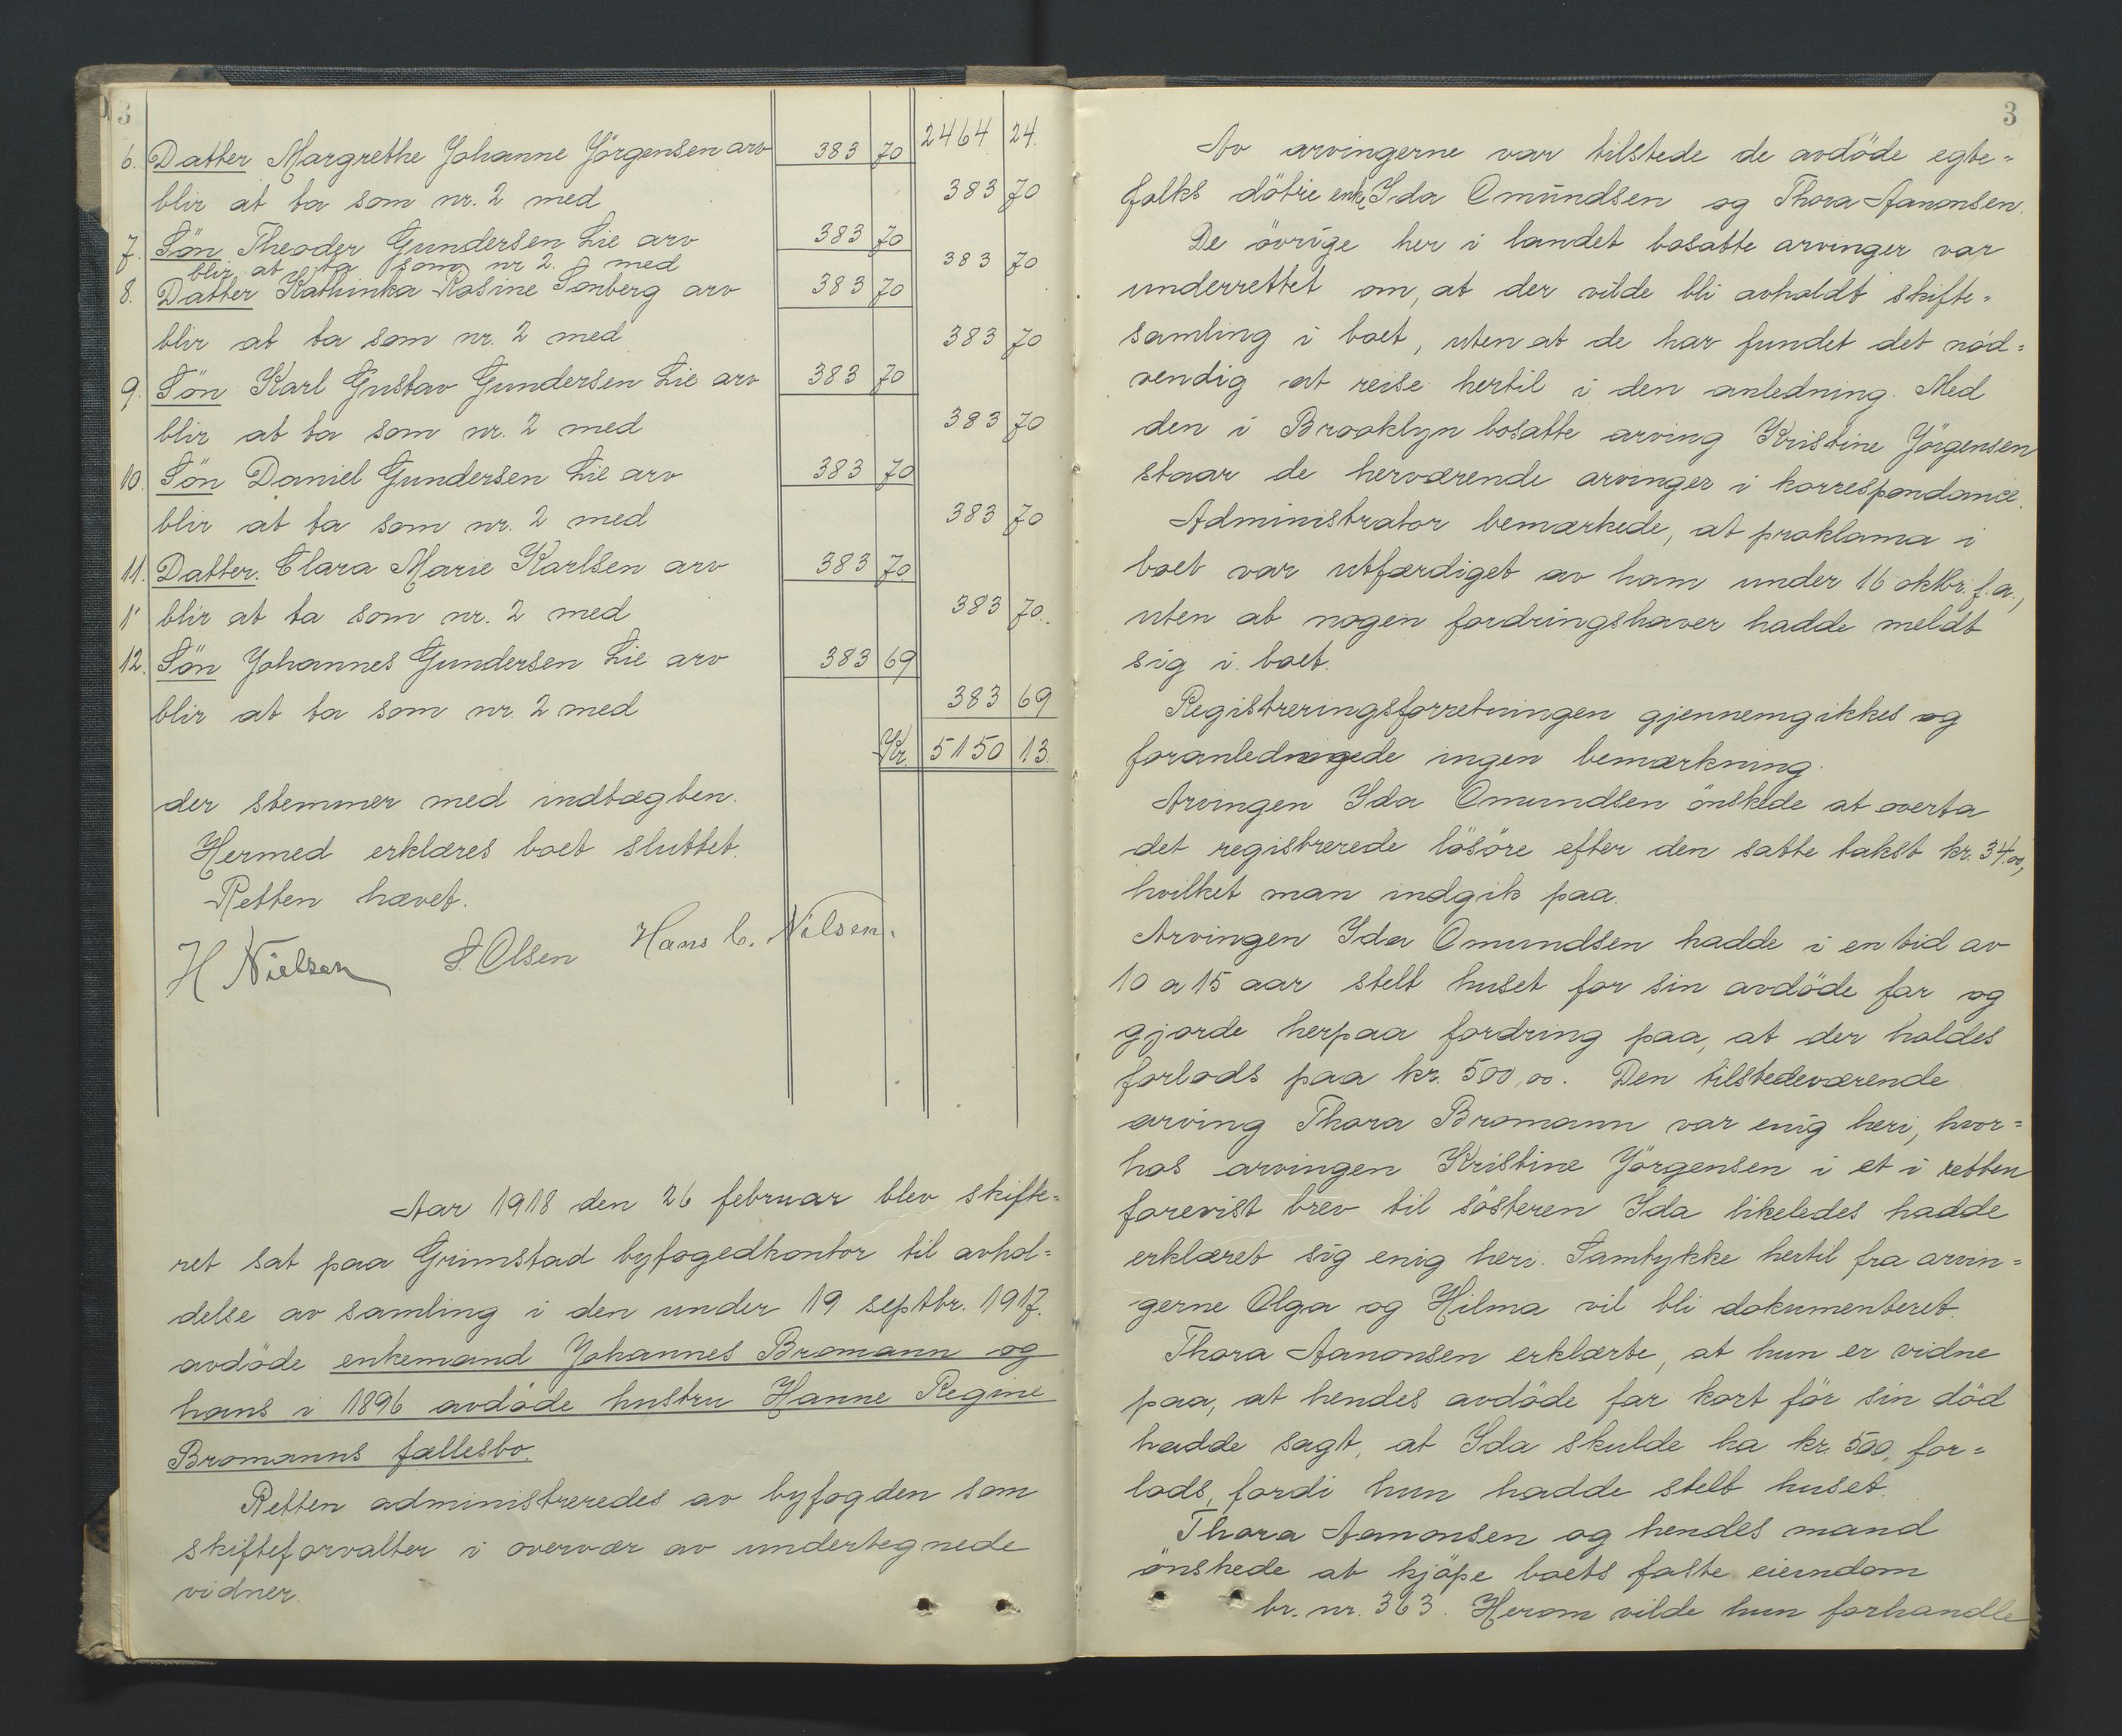 3
2464 24.
6. Datter Margrethe Johanne Jörgensen arv 383 70
blir at ta som nr. 2 med 383 70
7. Sön Theodor Gundersen Lie arv 383 70
blir at ta som nr 2. med 383 70
8. Datter Kathinka Rosine Sonberg arv 383 70
blir at ta som nr. 2 med 383 70
9. Sön Karl Gustav Gundersen Lie arv 383 70
blir at ta som nr. 2 med 383 70
10. Sön Daniel Gundersen Lie arv 383 70
blir at ta som nr. 2 med 383 70
11. Datter. Clara Marie Karlsen arv 383 70
blir at ta som nr. 2 med 383 70.
12. Sön Johannes Gundersen Lie arv 383 69
blir at ta som nr. 2 med 383 69
Kr. 5150 13.
der stemmer med indtægten.
Hermed erklæres boet sluttet.
Retten hævet.
H Nielsen S. Olsen Hans C. Nilsen.
Aar 1918 den 26 februar blev skifte=
ret sat paa Grimstad byfogedkontor til avhol=
delse av samling i den under 19 septbr. 1917.
avdöde enkemand Johannes Bromann og
hans i 1896 avdöde hustru Hanne Regine
Bromanns fællesbo.
Retten administreredes av byfogden som
skifteforvalter i overvær av undertegnede
vidner.
3
Av arvingerne var tilstede de avdöde egte=
folks dötre enke Ida Omundsen og Thora Aanonsen.
De övrige her i landet bosatte arvinger var
underrettet om, at der vilde bli avholdt skifte=
samling i boet, uten at de har fundet det nöd=
vendig at reise hertil i den anledning. Med
den i Brooklyn bosatte arving Kristine Jörgensen
staar de herværende arvinger i korrespondance.
Administrator bemærkede, at proklama i
boet var utfærdiget av ham under 16 oktbr. f.a.,
uten at nogen fordringshaver hadde meldt
sig i boet.
Registreringsforretningen gjennemgikkes og
foranledningede ingen bemærkning.
Arvingen Ida Omundsen önskede at overta
det registrerede lösöre efter den satte takst kr. 34.00,
hvilket man indgik paa.
Arvingen Ida Omundsen hadde i en tid av
10 a 15 aar stelt huset for sin avdöde far og
gjorde herpaa fordring paa, at der holdes
forlods paa kr. 500,00. Den tilstedeværende
arving Thora Bromann var enig heri, hvor=
hos arvingen Kristine Jörgensen i et i retten
forevist brev til sösteren Ida likeledes hadde
erklæret sig enig heri. Samtykke hertil fra arvin=
gerne Olga og Hilma vil bli dokumenteret.
Thora Aanonsen erklærte, at hun er vidne
paa, at hendes avdöde far kort för sin död
hadde sagt, at Ida skulde ha kr. 500, for=
lods, fordi hun hadde stelt huset.
Thora Aanonsen og hendes mand
önskede at kjöpe boets faste eiendom
br. nr. 363. Herom vilde hun forhandle